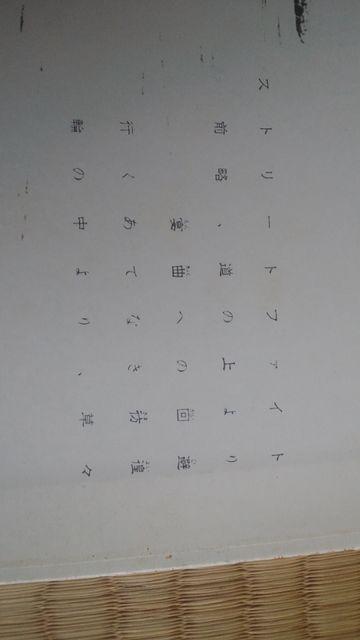 ストリートファイト
前略、道の上より
宴曲への回避
行くあてなき彷徨
輪の中より、草々